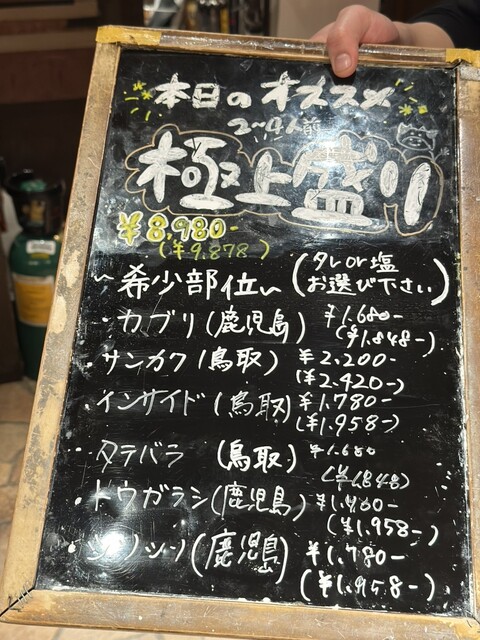 本日のオススメ
2~4人前
極上盛り
¥8,980-
(¥9,878)
~希少部位~ (タレor塩 お選び下さい)
・カブリ(鹿児島) ¥1.680- (¥1.848-)
・サンカク(鳥取) ¥2.200- (¥2.420-)
・インサイド(鳥取) ¥1.780- (¥1.958-)
・タテバラ (鳥取) ¥1.680 (¥1.848)
・トウガラシ(鹿児島) (¥1.958-)
(鹿児島) ¥1.780- (¥1.958-)